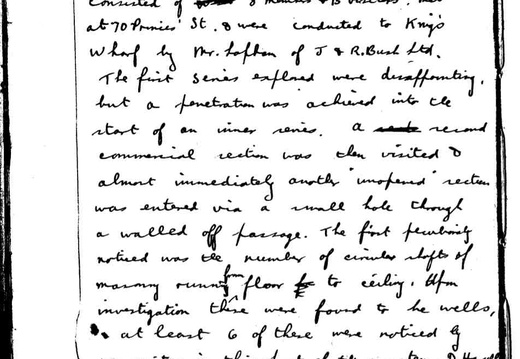 consisted of 8 members & 3 visitors.
at 70 Princes St. & were conducted to King's
Wharf by Mr. Lapham of J & R. Bush Ltd.
The first series explored were disappointing,
but a penetration was achieved into the
start of an inner series. A second
commercial section was then visited &
almost immediately another "unopened" section
was entered via a small hole through
a walled off passage. The first peculiarity
noticed was the number of circular shafts of
masonry running from floor to ceiling. Upon
investigation these were found to be wells,
at least 6 of these were noticed by